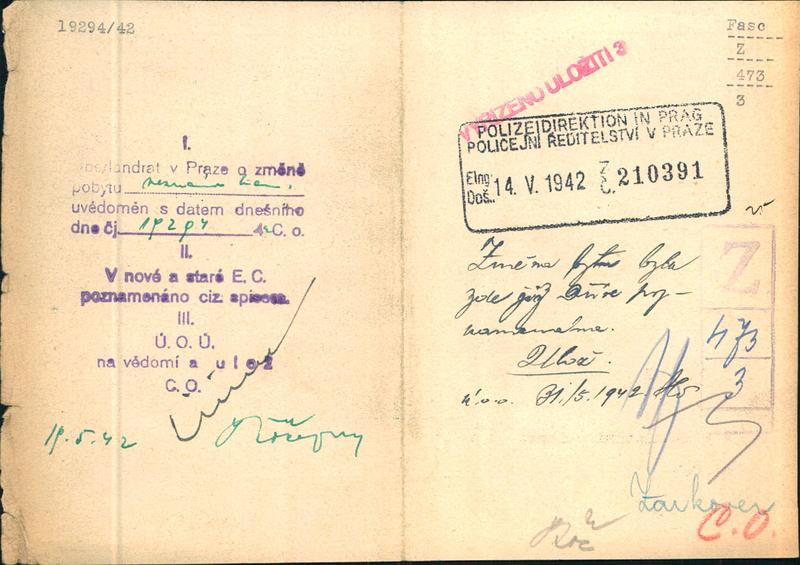 19294/42
I.
Oberlandrat v Praze o změně
pobytu
uvědoměn s datem dnešního
dne čj. 19294 42 C. o.
II.
V nové a staré E. C.
poznamenáno ciz. spisem.
III.
Ú. O. Ú.
na vědomí a ulož
C. O.
19.5.42
Fasc
Z
473
3
VYŘÍZENO ULOŽITI 3
POLIZEIDIREKTION IN PRAG
POLICEJNÍ ŘEDITELSTVÍ V PRAZE
Elng.
Doš. 14. V. 1942 Z. Č. 210391
Změna bytu byla
zde již dříve poz-
namenána.
Ulož.
ú.o.o. 31./5. 1942
Z
473
3
C.O.